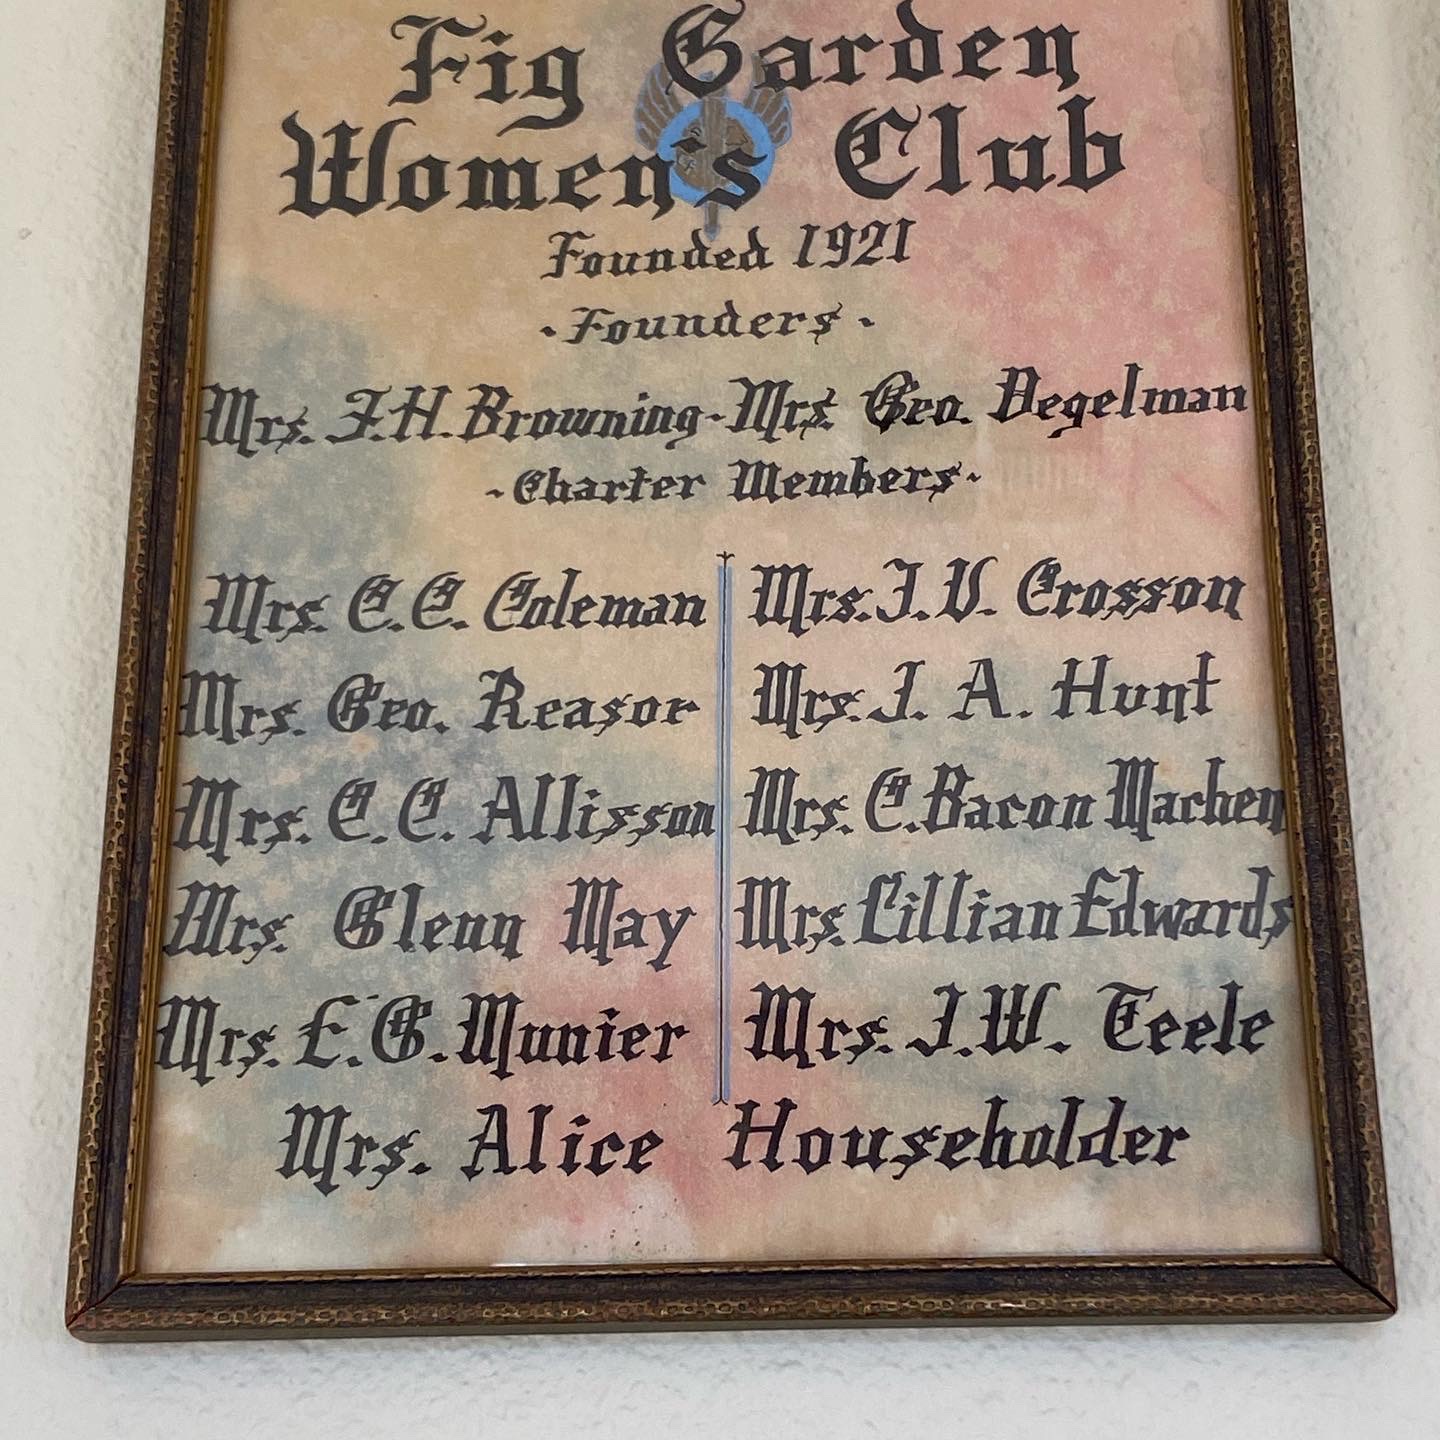 Fig Garden
Women's Club
Founded 1921
- Founders -
Mrs. F. H. Browning - Mrs. Geo. Degelman
- Charter Members -
Mrs. C. C. Coleman
Mrs. Geo. Reasor
Mrs. C. C. Allisson
Mrs. Glenn May
Mrs. E. G. Munier
Mrs. J. V. Crosson
Mrs. J. A. Hunt
Mrs. C. Bacon Machen
Mrs. Lillian Edwards
Mrs. J. W. Teele
Mrs. Alice Householder